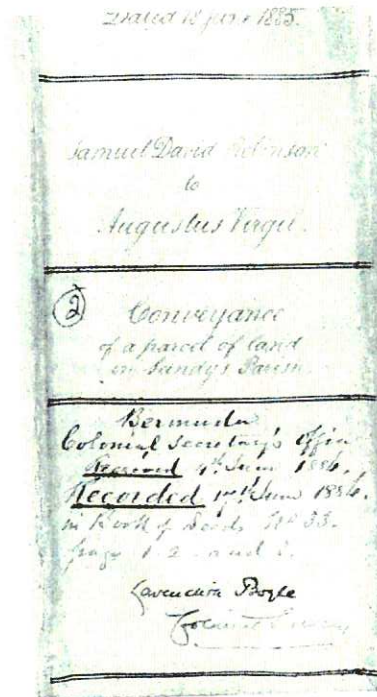 Dated 18 June 1885.
Samuel David Robinson
to
Augustus Virgil.
②
Conveyance
of a parcel of land
in Sandys Parish
Bermuda
Colonial Secretary's Office
Received 4th June 1886.
Recorded June 1886.
in Book of Deeds No 33.
page 1. 2. and
Cavendish Boyle